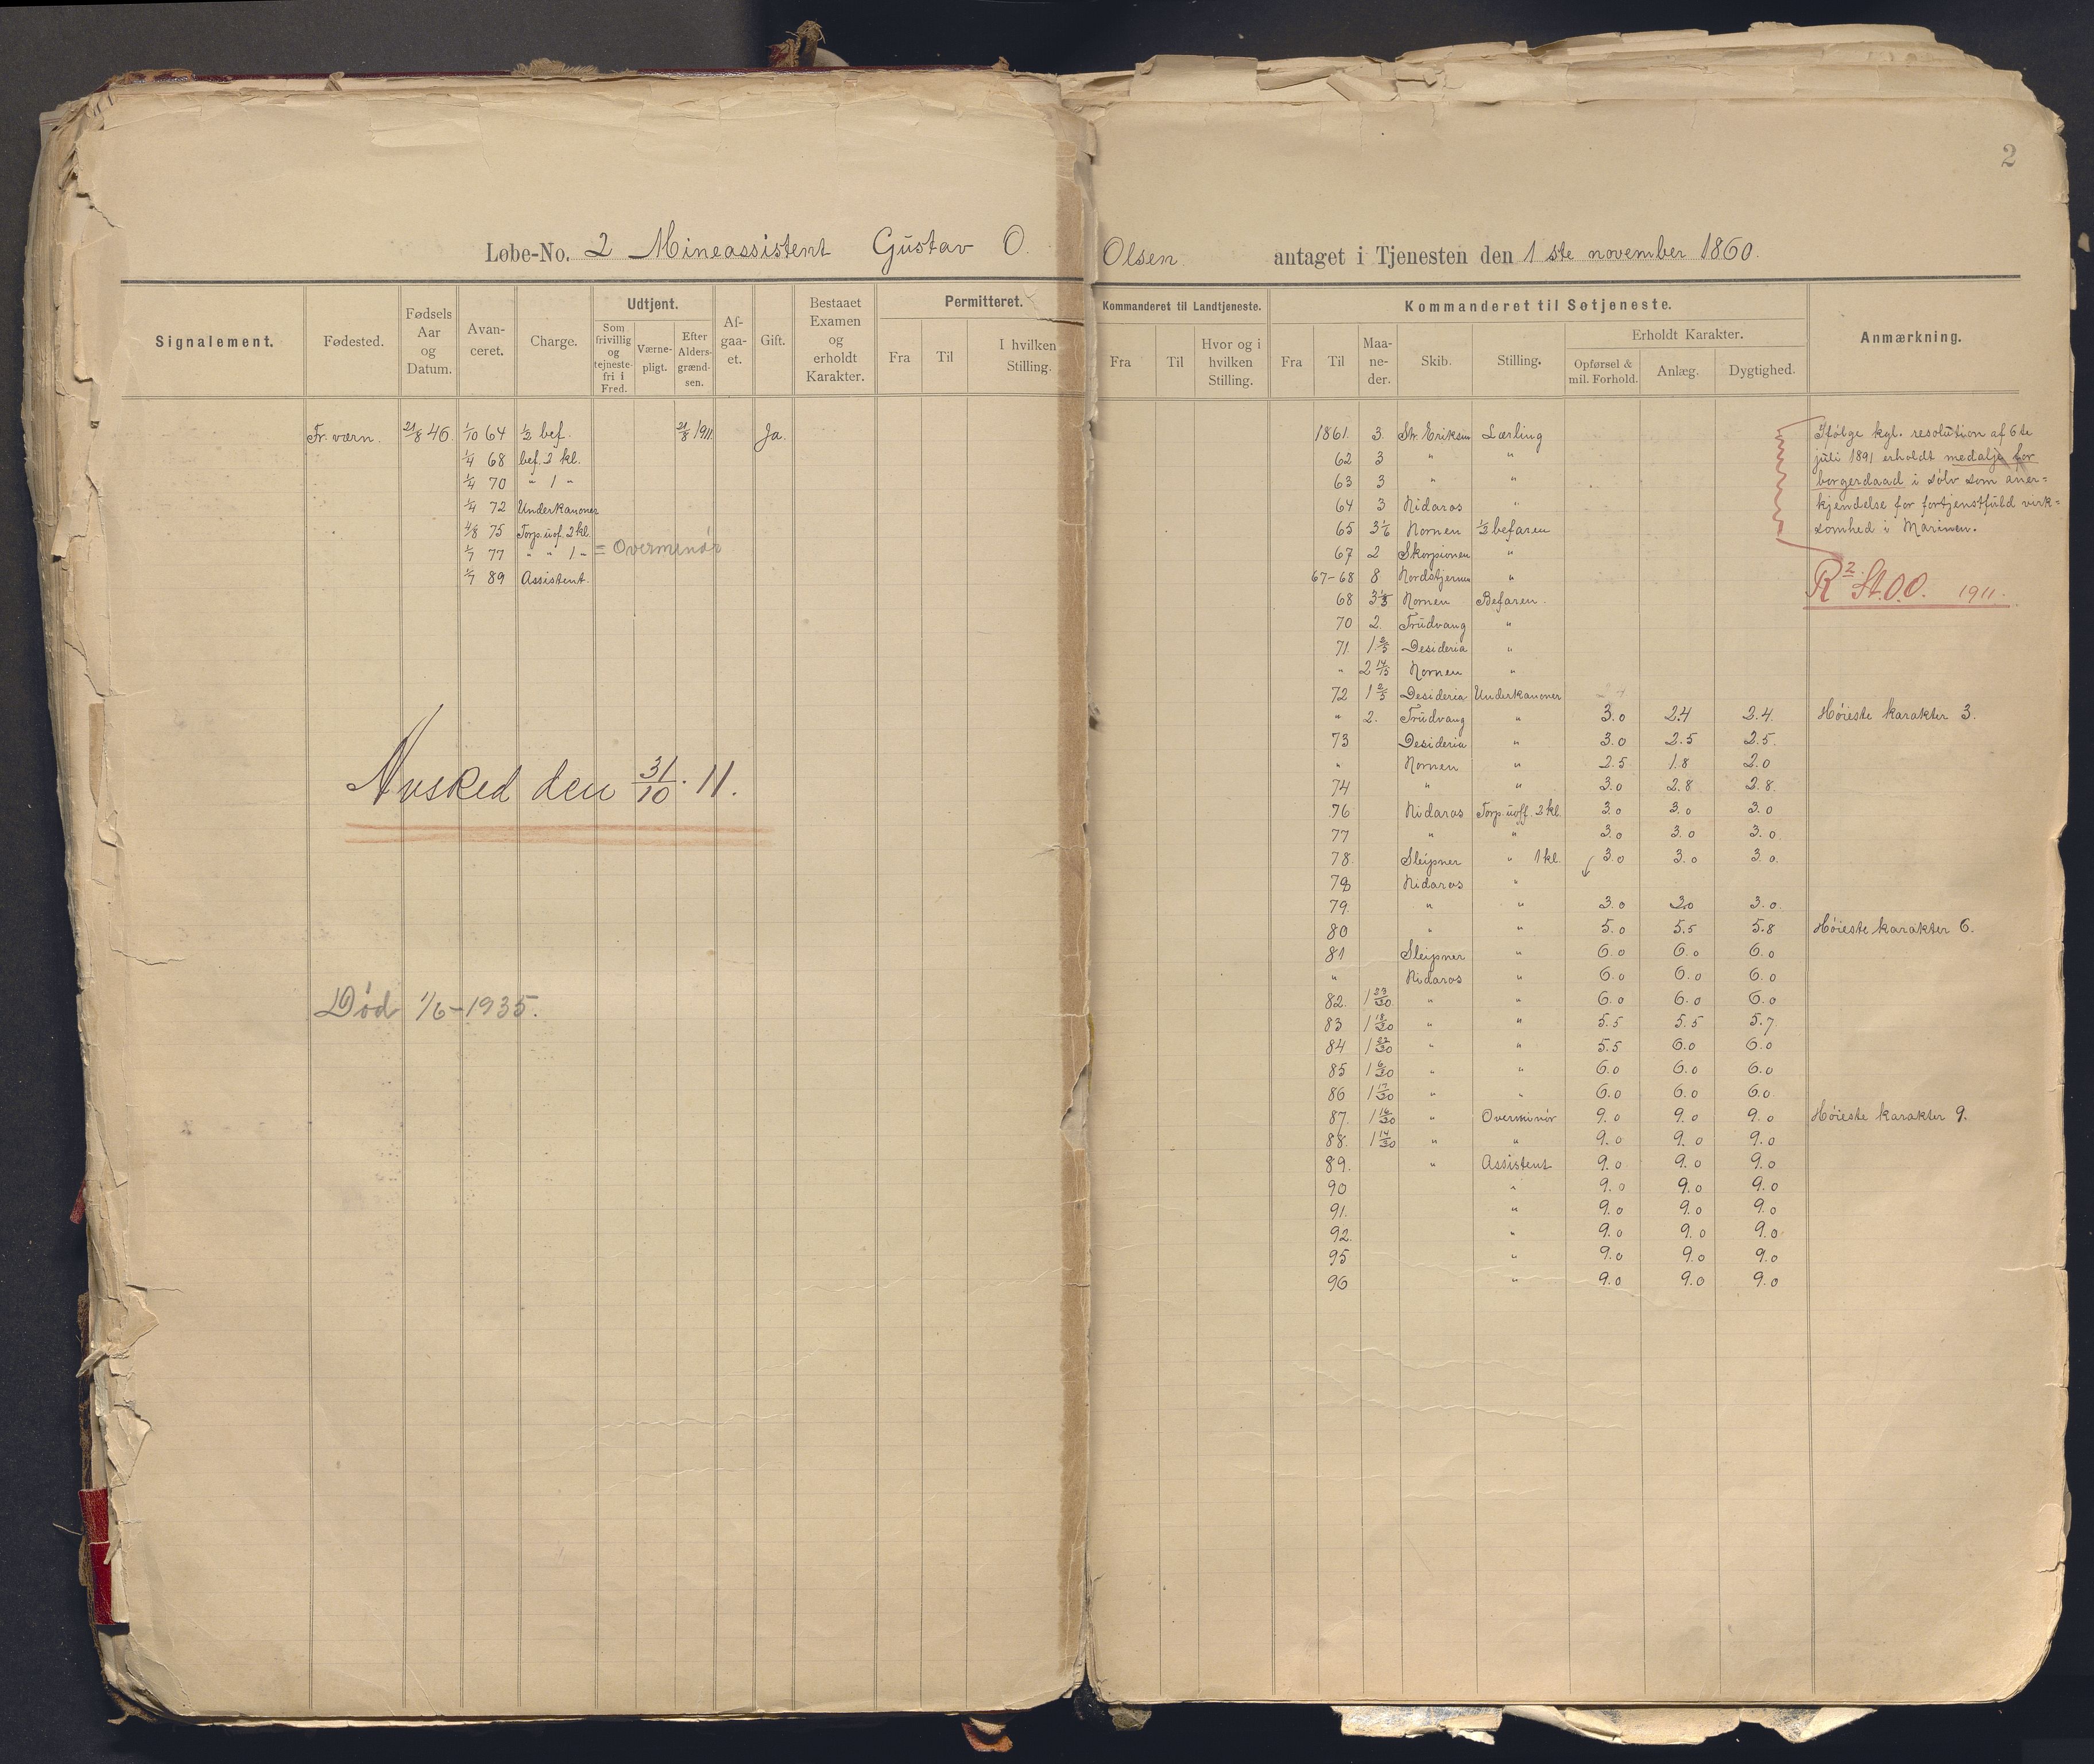 2
Løbe-No. 2 Mineassistent Gustav O. Olsen antaget i Tjenesten den 1 ste november 1860.
Signalement. Fødested. Fødsels Aar og Datum. Avan-ceret. Charge. Udtjent. Som frivillig og tejneste-fri i Fred. Værne-pligt. Efter Alders-grænd-sen. Af-gaa-et. Gift. Bestaaet Examen og erholdt Karakter. Permitteret. Fra Til I hvilken Stilling.
Fr.værn. 21/8 46. 1/10 64 ½ bef. 21/8 1911 Ja.
1/4 68 bef. 2 kl.
1/4 70 " 1 "
1/4 72 Underkanoner
4/8 75 Torp.uof. 2 kl.
1/7 77 " " 1 " = Overminør
1/7 89 Assistent.
Avsked den 31/10. 11.
Død 1/6-1935.
Kommanderet til Landtjeneste. Fra Til Hvor og i hvilken Stilling. Kommanderet til Søtjeneste. Fra Til Maa-ne-der. Skib. Stilling. Erholdt Karakter. Opførsel & mil. Forhold. Anlæg. Dygtighed. Anmærkning.
1861. 3. St. Eriksen Lærling
62 3 " "
63 3 " "
64 3 Nidaros "
65 3 1/6 Nornen ½ befaren
67 2 Skorpionen "
67-68 8 Nordstjernen "
68 Nornen Befaren.
70 2. Trudvang "
71 1 2/5 Desideria "
" 2 14/15 Nornen "
72 1 2/5 Desideria Underkanoner
" 2. Trudvang " 3.0 2.4 2.4. Høieste karakter 3.
73 Desideria " 3.0 2.5 2.5.
" Nornen " 2.5 1.8 2.0
74 " " 3.0 2.8 2.8.
76 Nidaros Torp.uoff. 2 kl. 3.0 3.0 3.0
77 " " 3.0 3.0 3.0
78. Sleipner " 1 kl. 3.0 3.0 3.0.
78 Nidaros "
79. " " 3.0 3.0 3.0.
80 " " 5.0 5.5 5.8 Høieste karakter 6.
81 Sleipner " 6.0 6.0 6.0
" Nidaros " 6.0 6.0 6.0
82. 1 23/30 " " 6.0 6.0 6.0
83 1 18/30 " " 5.5 5.5 5.7
84 1 22/30 " " 5.5 6.0 6.0
85 1 6/30 " " 6.0 6.0 6.0
86 1 17/30 " " 6.0 6.0 6.0.
87. 1 16/30 " Overminør 9.0 9.0 9.0 Høieste karakter 9.
88. 1 14/30 " " 9.0 9.0 9.0
89. " Assistent 9.0 9.0 9.0
90 " 9.0 9.0 9.0
91. " 9.0 9.0 9.0
92. " 9.0 9.0 9.0
95 " 9.0 9.0 9.0
96 " 9.0 9.0 9.0
Ifølge kgl. resolution af 6te
juli 1891 erholdt medalje for
borgerdaad i sølv som aner=
kjendelse for fortjenstfuld virk=
somhed i Marinen.
R² St.O.O. 1911.